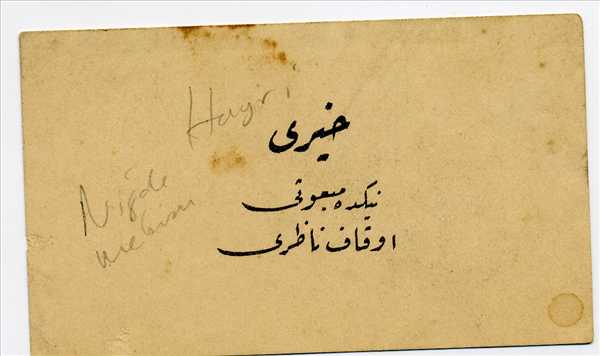 Hayri
خیری
Niğde
نیكده مبعوثی
اوقاف ناظری